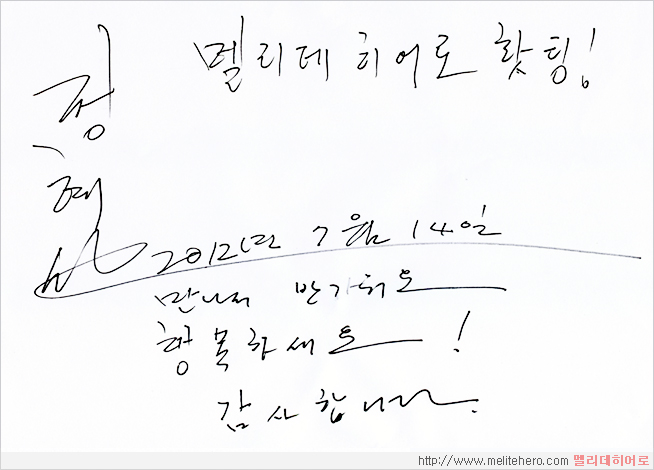 멜리데히어로 홧팅!
2012년 7월 14일
만나서 반가워요
행복하세요!
감사합니다.
http://www.melitehero.com 멜리데히어로